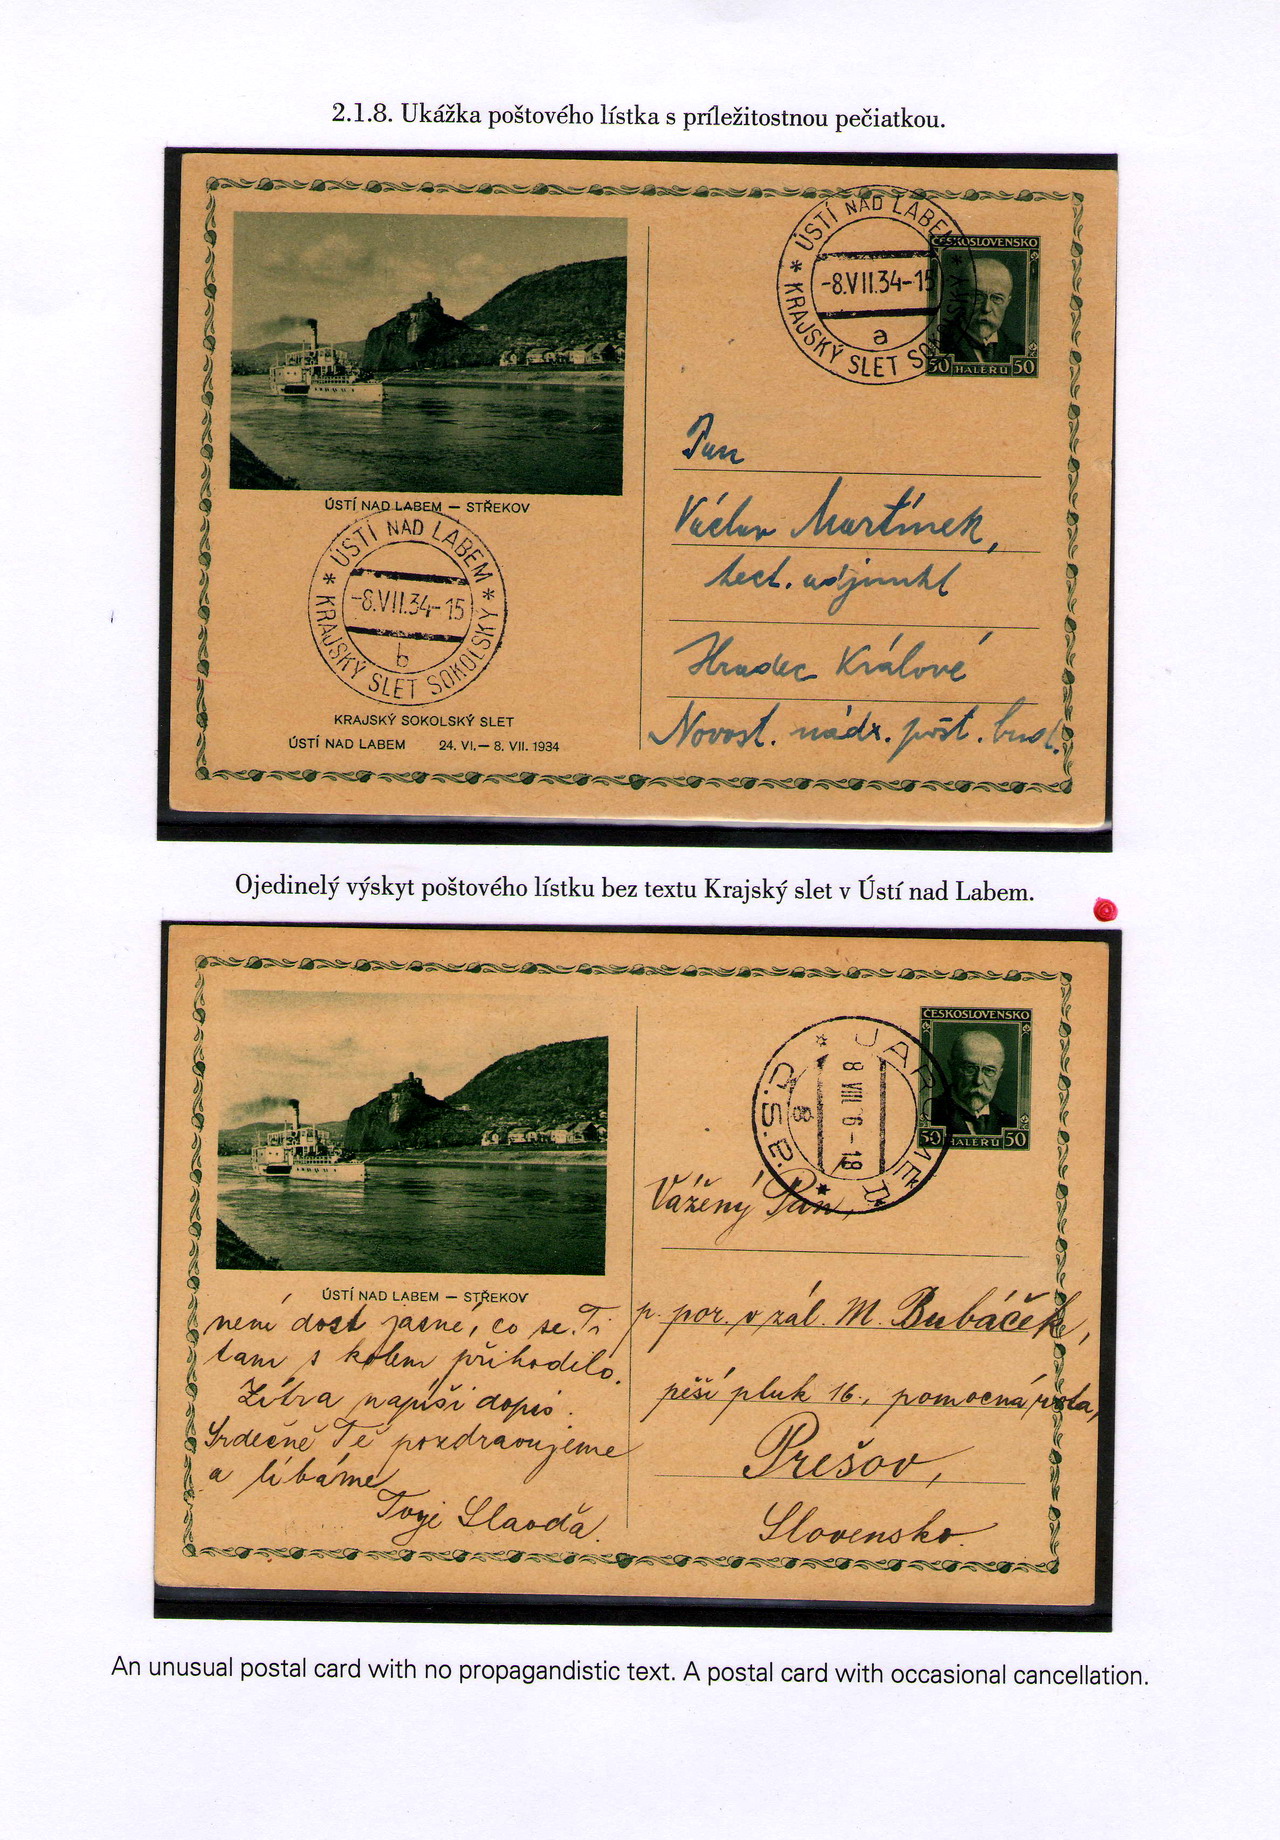 2.1.8. Ukážka poštového lístka s príležitostnou pečiatkou.
ÚSTÍ NAD LABEM
-8.VII.34-15
a
* KRAJSKÝ SLET SOKOLSKÝ *
ČESKOSLOVENSKO
50 HALÉŘŮ 50
ÚSTÍ NAD LABEM — STŘEKOV
ÚSTÍ NAD LABEM
-8.VII.34-15
b
* KRAJSKÝ SLET SOKOLSKÝ *
KRAJSKÝ SOKOLSKÝ SLET
ÚSTÍ NAD LABEM 24. VI.— 8. VII. 1934
Pan
Václav Martínek,
adjunkt
Hradec Králové
Novost. nádr. pošt. bud.
Ojedinelý výskyt poštového lístku bez textu Krajský slet v Ústí nad Labem.
ČESKOSLOVENSKO
50 HALÉŘŮ 50
Č.S.R.
8 VIII 36-18
8
ÚSTÍ NAD LABEM — STŘEKOV
není dost jasné, co se Ti
tam s kolem přihodilo.
Zítra napíši dopis.
Srdečně Tě pozdravujeme
a líbáme
Tvoji
Vážený Pan,
p. por. v zál. M. Bubáček,
pěší pluk 16., pomocná rota,
Prešov,
Slovensko.
An unusual postal card with no propagandistic text. A postal card with occasional cancellation.